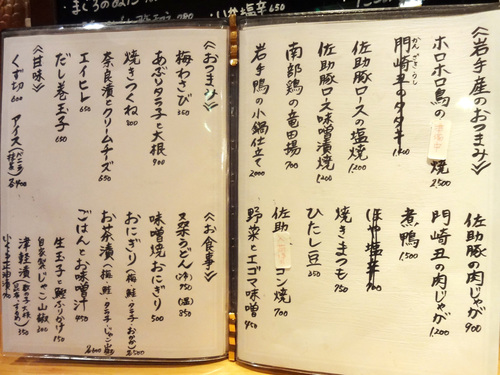 まぐろのぬた 780
いか塩辛 650
≪岩手産のおつまみ≫
ホロホロ鳥の
焼 2500
門崎丑のタタキ 1400
かんざきうし
佐助豚ロースの塩焼 1200
佐助豚ロース味噌漬焼 1200
南部鶏の竜田揚 900
岩手鴨の小鍋仕立て 2000
佐助豚の肉じゃが 900
門崎丑の肉じゃが 1200
煮鴨 1500
ほや塩辛 700
焼きまつも 750
ひたし豆 350
佐助
コン焼 700
野菜とエゴマ味噌 450
≪おつまみ≫
梅わさび 350
あぶりタラ子と大根 900
焼きつくね 700
奈良漬とクリームチーズ 650
エイヒレ 650
だし巻玉子 650
≪甘味≫
くず切 600
アイス
各400
≪お食事≫
うどん (冷) 750 (温) 850
味噌焼おにぎり 500
おにぎり (梅・鮭・タラ子・おかか) 各500
お茶漬 (梅・鮭・タラ子・じゃこ山椒) 各600
ごはんとお味噌汁 450
生玉子と鮭ふりかけ 150
自家製じゃこ山椒 300
津軽漬 350